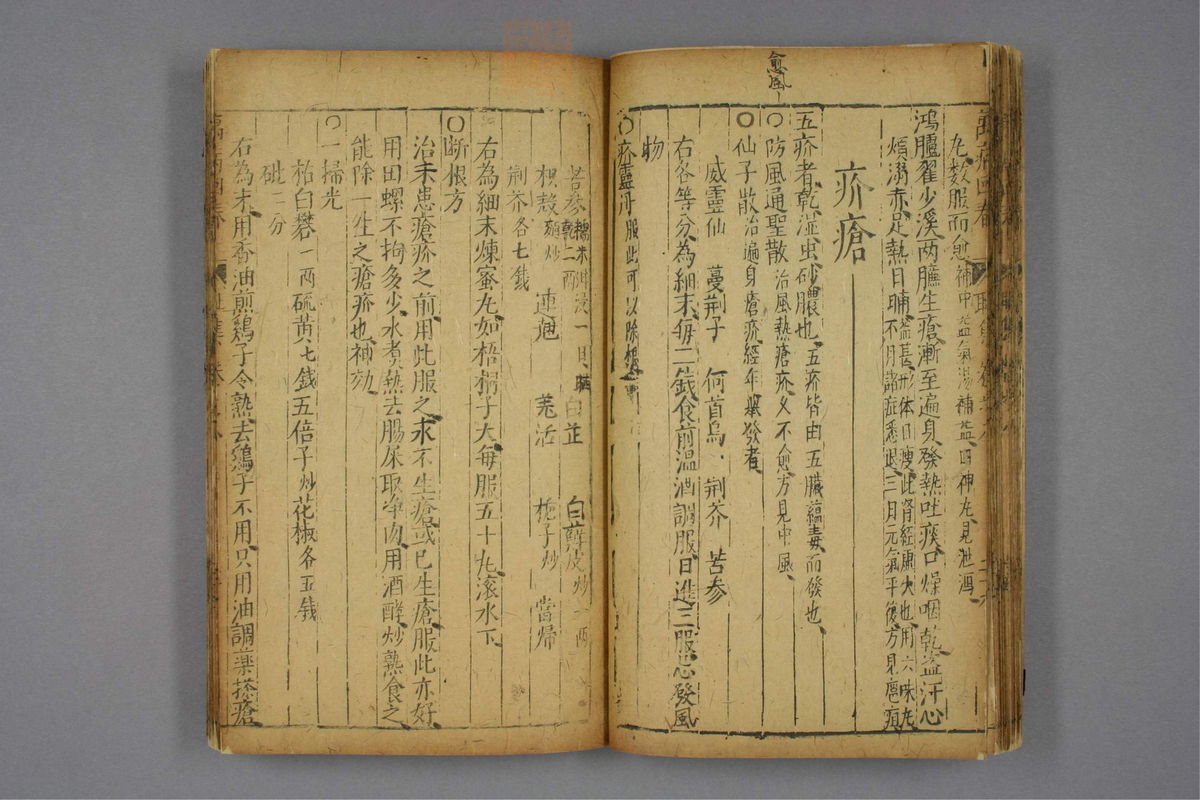 愈風
丸數服而愈補中益氣湯補益四神丸見泄瀉
鴻臚翟少溪两臁生瘡漸至遍身發熱吐痰口燥咽乾盗汗心
煩溺赤足熱日晡益甚形体日瘦此腎經虚火也用六味丸
不月諸症悉退三月元氣平復方見虚損
疥瘡
五疥者乾湿虫砂膿也五疥皆由五臟蘊毒而發也
○防風通聖散治風熱瘡疥久不愈方見中風
○仙子散治遍身瘡疥經年發者
威靈仙 蔓荆子 何首烏 荆芥 苦参
右各等分為細末每二錢食前温酒調服日進三服忌發風
物
○疥靈丹服此可以除根
苦参糯米泔浸一日晒乾二两 白芷 白蘚皮炒一两
枳殻麸炒 連翹 羗活 梔子炒 當帰
荆芥各七錢
右為細末煉蜜丸如梧桐子大每服五十丸滚水下
○断根方
治未患瘡疥之前用此服之永不生瘡或已生瘡服此亦好
用田螺不拘多少水煮熱去腸屎取净肉用酒酵炒熟食之
能除一生之瘡疥也補効
○一掃光
枯白礬一两硫黄七錢五倍子炒花椒各五錢
砒一分
右為末用香油煎鷄子令熟去鷄子不用只用油調藥搽瘡